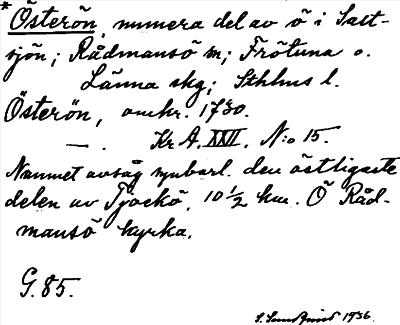 * Österön, numera del av ö i Salt-
sjön; Rådmansö sn; Frötuna o.
Länna skg; Sthlms l.
Österön, omkr. 1730.
— . Kr A. XXII. N:o 15.
Namnet avsåg synbarl. den östligaste
delen av Tjockö, 10 1/2 km. Ö Råd-
mansö kyrka.
G. 85.
1936.